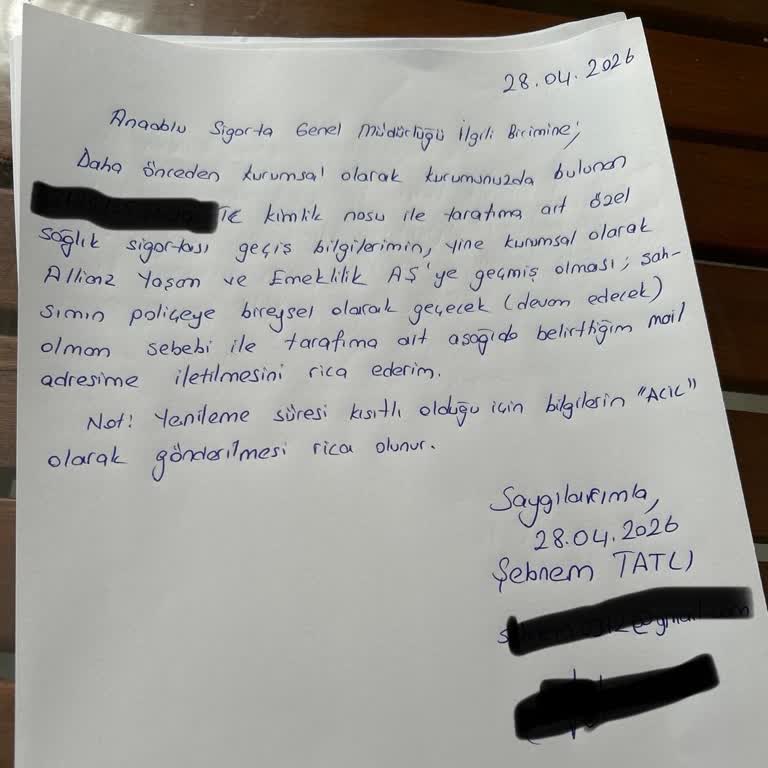 28.04.2026
Anadolu Sigorta Genel Müdürlüğü İlgili Birimine;
Daha önceden kurumsal olarak kurumunuzda bulunan
TC kimlik nosu ile tarafıma ait özel
sağlık sigortası geçiş bilgilerimin, yine kurumsal olarak
Allianz Yaşam ve Emeklilik AŞ'ye geçmiş olması; şah-
sımın poliçeye bireysel olarak geçecek (devam edecek)
olmam sebebi ile tarafıma ait aşağıda belirttiğim mail
adresime iletilmesini rica ederim.
Not! Yenileme süresi kısıtlı olduğu için bilgilerin "ACİL"
olarak gönderilmesi rica olunur.
Saygılarımla,
28.04.2026
Şebnem TATLI